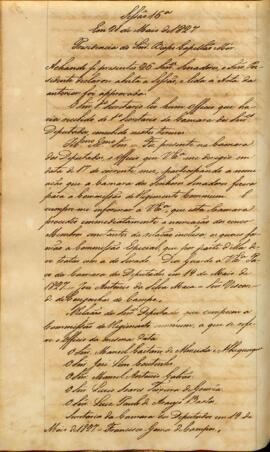 Sessão 15ª
Em 21 de Maio de 1827
Presidencia do Snr. Bispo Capellão Mór
Achando-se presentes 35 Snrs. Senadores, o Snr. Pre-
sidente declarou aberta a Sessão, e lida a Acta da
anterior foi approvada.
O Snr. 1º Secretario leo hum Officio que ha-
via recebido do 1º Secretario da Camara dos Snrs.
Deputados, concebido nestes termos
Foi presente na Camara
dos Deputados, o Officio que V. Exª me dirigio em
data de 17 do corrente mez, participando a nomea-
ção que a Camara dos Senhores Senadores fizera
para a Commissão do Regimento Commum. E
cumpre-me informar a V. Exª, que esta Camara
procedeo immediatamente a nomeação de cinco
Membros constantes da relação inclusa, os quaes for-
mão a Commissão Especial, que por parte della de-
ve tratar com a do Senado. Deos Guarde a V. Exª Pa-
ço da Camara dos Deputados em 19 de Maio de
1827. José Antonio da Silva Maia = Snr. Viscon-
de de Congonhas do Campo.
Relação dos Snrs. Deputados que compoem a
Commissão do Regimento commum, a que se refe-
re o Officio da mesma data
O Snr. Manoel Caetano de Almeida e Albuquerque
O Snr. José Lino Coutinho
O Snr. Manoel Antonio Galvão
O Snr. Lucio Soares Teixeira de Gouvêa
O Snr. Luiz Paulo de Araujo Basto
Secretaria da Camara dos Deputados em 19 de
Maio de 1827. Francisco Gomes de Campos.